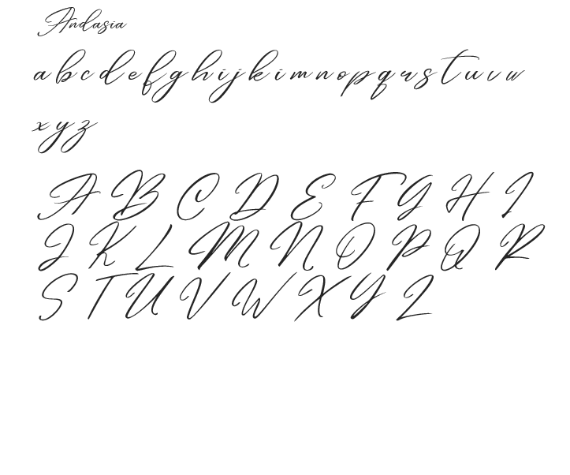 Andasia
a b c d e f g h i j k i m n o p q r s t u v w
x y z
A B C D E F G H I
J K L M N O P Q R
S T U V W X Y Z